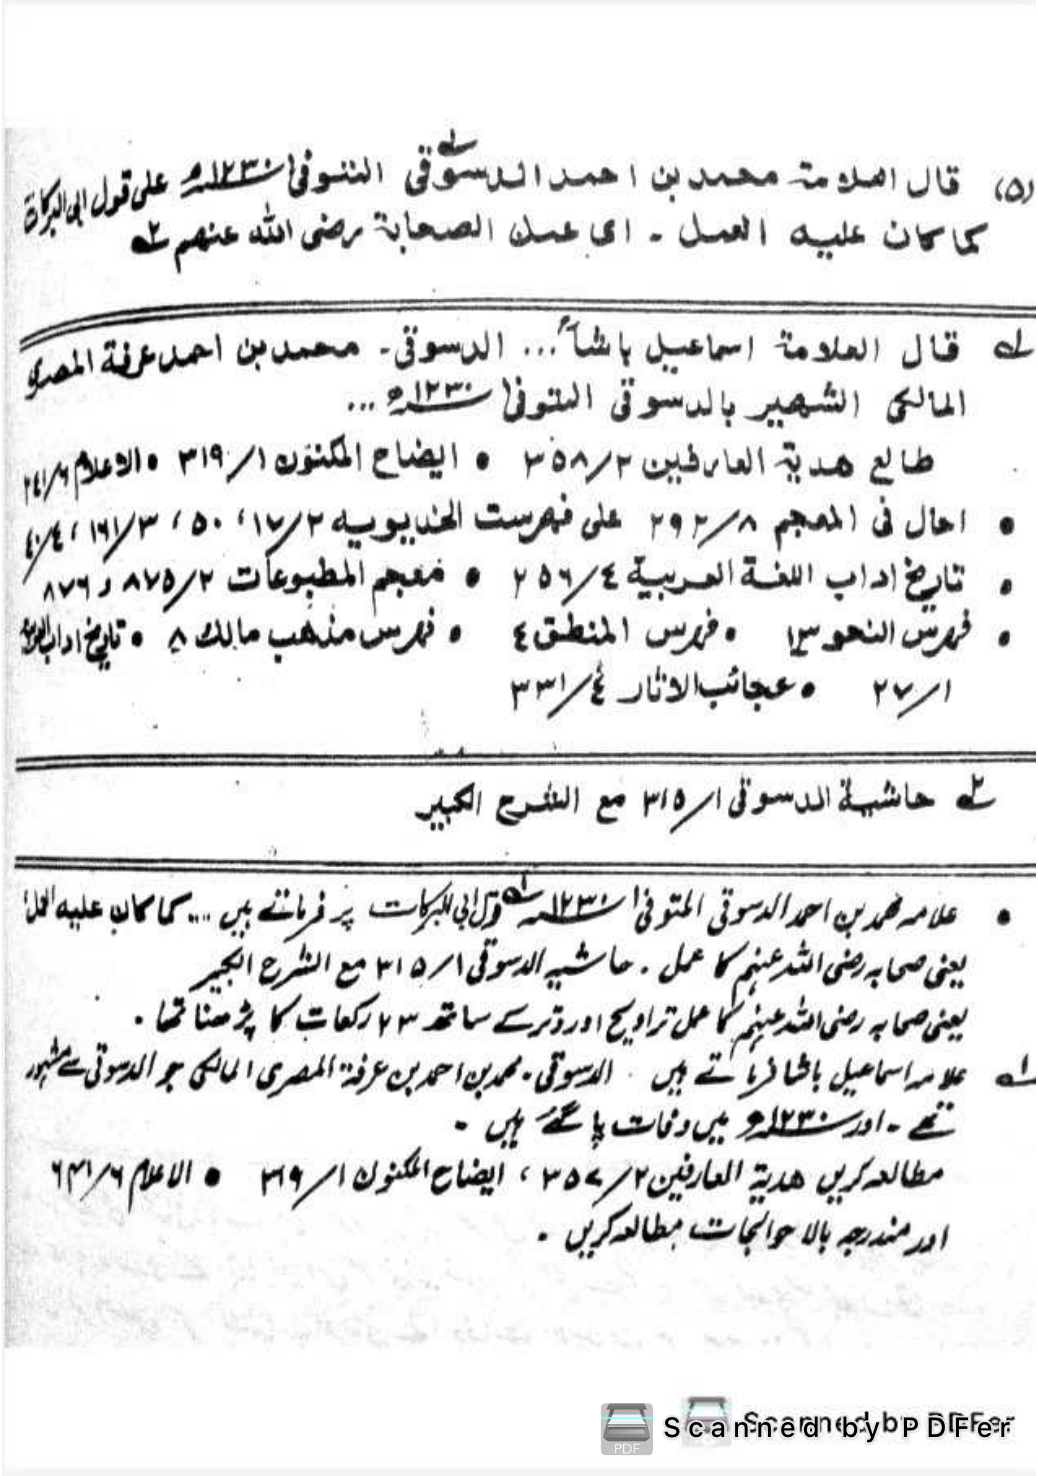 (۵) قال العلامة محمد بن احمد الدسوقی المتوفیٰ ۱۲۳۰ھ علی قول ابی البرکات
کما کان علیہ العمل ۔ ای عمل الصحابة رضی اللہ عنهم ۲؎
۱؎ قال العلامة اسماعیل باشا ... الدسوقی ۔ محمد بن احمد عرفة المصری
المالکی الشهیر بالدسوقی المتوفیٰ ۱۲۳۰ھ ...
طالع هدیة العارفین ۲/۳۵۸ • ایضاح المکنون ۱/۳۱۹ • الاعلام ۶/۲۴۱
• احال فی المعجم ۸/۲۹۲ علی فهرست الخدیویہ ۲/۱۷، ۵۰، ۳/۱۶۱، ۴/۴۰
• تاریخ اداب اللغة العربیة ۴/۲۵۶ • معجم المطبوعات ۲/۸۷۵ و ۸۷۶
• فهرس النحو ۱۳ • فهرس المنطق ۴ • فهرس مذهب مالک ۸ • تاریخ اداب
۱/۲۷ • عجائب الاثار ۴/۳۳۱
۲؎ حاشیة الدسوقی ۱/۳۱۵ مع الشرح الکبیر
• علامہ محمد بن احمد الدسوقی المتوفیٰ ۱۲۳۰ھ ۱؎ قول ابی البرکات پر فرماتے ہیں ... کما کان علیہ العمل
یعنی صحابہ رضی اللہ عنہم کا عمل ۔ حاشیہ الدسوقی ۱/۳۱۵ مع الشرح الکبیر
یعنی صحابہ رضی اللہ عنہم کا عمل تراویح اور وتر کے ساتھ ۲۳ رکعات کا پڑھنا تھا ۔
۱؎ علامہ اسماعیل باشا فرماتے ہیں ۔ الدسوقی ۔ محمد بن احمد بن عرفة المصری المالکی جو الدسوقی سے مشہور
تھے ۔ اور ۱۲۳۰ھ میں وفات پا گئے ہیں ۔
مطالعہ کریں هدیة العارفین ۲/۳۵۷ ، ایضاح المکنون ۱/۳۱۹ • الاعلام ۶/۲۴۱
اور مندرجہ بالا حوالجات مطالعہ کریں ۔
Scanned by PDFer
Scanned by PDFer
PDF